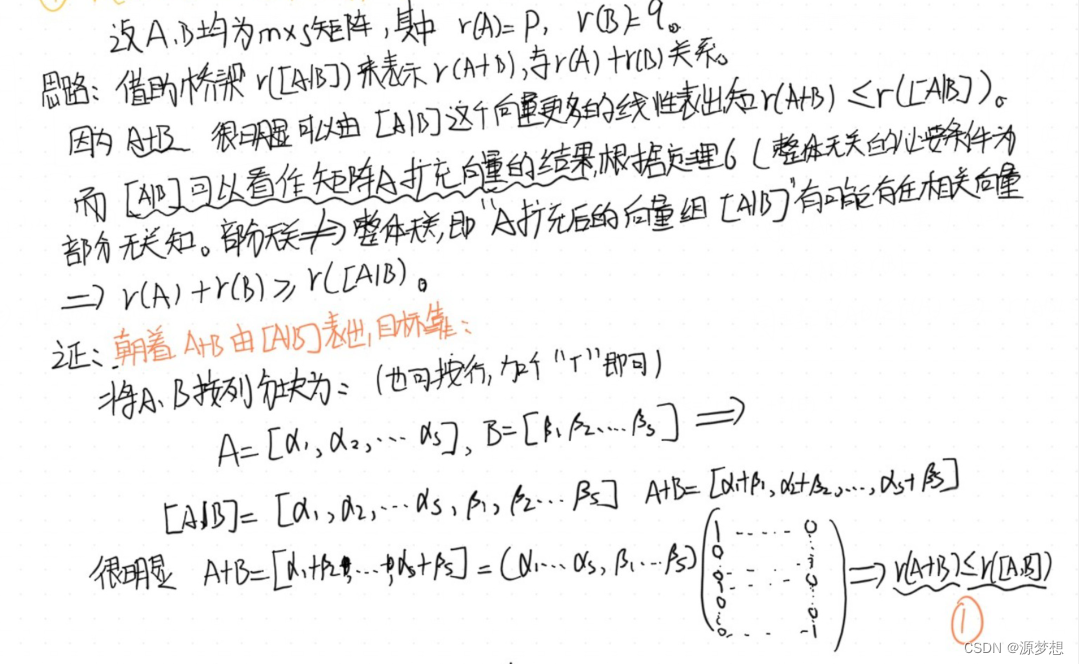 设A、B均为m×s矩阵,其中 r(A)=p, r(B)=q。
思路: 借助桥梁 r([A|B])来表示r(A+B),与r(A)+r(B)关系。
因为A+B 很明显可以由[A|B]这个向量更多的线性表出知r(A+B)≤r([A|B])。
而[A|B]可以看作矩阵A扩充向量的结果,根据定理6(整体无关的必要条件为
部分无关知。部分无关⇏整体无关,即"A扩充后的向量组[A|B]"有可能存在相关向量
⇒ r(A)+r(B)≥r([A|B)。
证: 朝着A+B由[A|B]表出,目标靠:
将A、B按列分块为: (也可按行,加个"T"即可)
A=[α₁,α₂,…αs], B=[β₁,β₂…βs] ⇒
[A|B]=[α₁,α₂,…αs,β₁,β₂…βs] A+B=[α₁+β₁,α₂+β₂,…,αs+βs]
很明显 A+B=[α₁+β₂,…,αs+βs]=(α₁…αs,β₁…βs) ⇒ r(A+B)≤r([A,B])
①
CSDN @源梦想